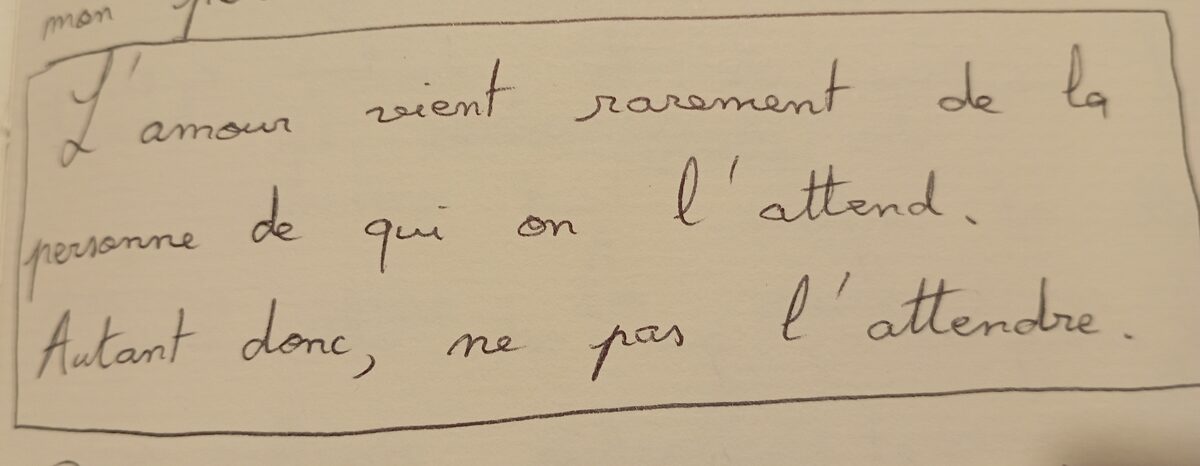 mon
L'amour vient rarement de la
personne de qui on l'attend.
Autant donc, ne pas l'attendre.